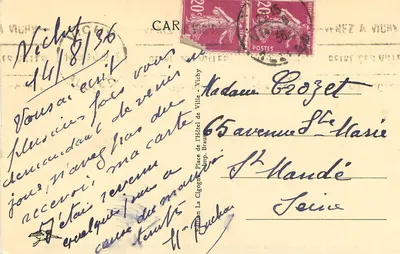 CAR
Vichy
14/8/36
Vous ai écrit
plusieurs fois vous
demandant de venir un
jour, n'avez pas du
recevoir, ma carte
J'étais revenu
quelques jours a
cause du mauvais
temps
20c
POSTES
20c
POSTES
Madame Crozet
65 avenue Ste Marie
St Mandé
Seine
La Cigogne, Place de l'Hôtel de Ville - Vichy